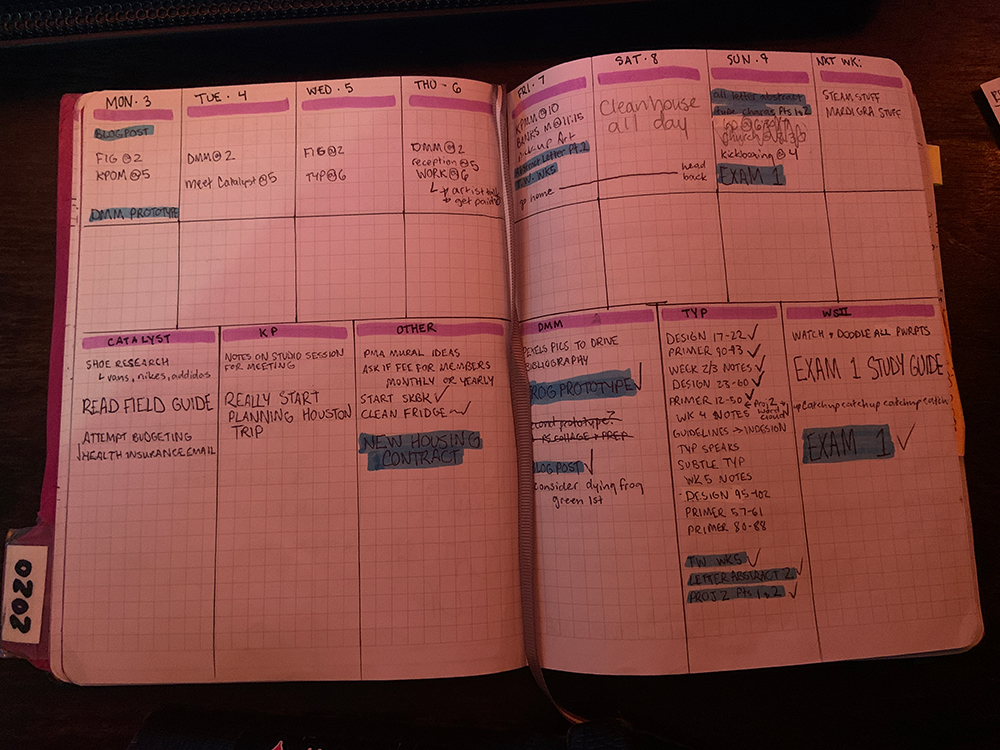 MON. 3
BLOG POST
FIG @ 2
KPDM @ 5
DMM PROTOTYPE
TUE. 4
DMM @ 2
meet Catalyst @ 5
WED. 5
FIG @ 2
TYP @ 6
THU - 6
DMM @ 2
reception @ 5
WORK @ 6
FRI. 7
KPMM @ 10
BANKS M @ 11:15
pick up Art
T.W. WK5
go home
SAT. 8
Clean house
all day
head
back
SUN. 9
all letter abstract
kickboxing @ 4
EXAM 1
NXT WK:
STEAM STUFF
MARDI GRA STUFF
CATALYST
SHOE RESEARCH
vans, nikes, addidas
READ FIELD GUIDE
ATTEMPT BUDGETING
HEALTH INSURANCE EMAIL
KP
NOTES ON STUDIO SESSION
FOR MEETING
REALLY START
PLANNING HOUSTON
TRIP
OTHER
PMA MURAL IDEAS
ASK IF FEE FOR MEMBERS
MONTHLY OR YEARLY
START SKBK ✓
CLEAN FRIDGE
NEW HOUSING
CONTRACT
DMM
PEXELS PICS TO DRIVE
BIBLIOGRAPHY
FROG PROTOTYPE ✓
BLOG POST ✓
consider dying frog
green 1st
TYP
DESIGN 17-22 ✓
PRIMER 90-93 ✓
WEEK 2/3 NOTES ✓
DESIGN 23-60 ✓
PRIMER 12-50 ✓
WK 4 NOTES
Proj 2
word
cloud
GUIDELINES → INDESIGN
TYP SPEAKS
SUBTLE TYP
WK 5 NOTES
DESIGN 95-102
PRIMER 57-61
PRIMER 80-88
TW WK5 ✓
LETTER ABSTRACT 2 ✓
PROJ 2 Pts 1 & 2 ✓
WSII
WATCH + DOODLE ALL PWRPTS
EXAM 1 STUDY GUIDE
catchup catchup catchup catch
EXAM 1 ✓
0202